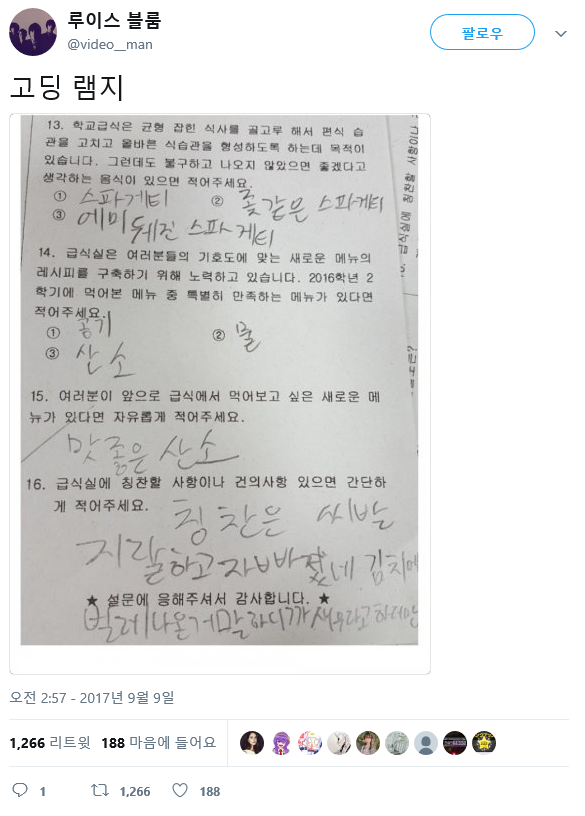 루이스 블룸
@video__man
팔로우
고딩 램지
13. 학교급식은 균형 잡힌 식사를 골고루 해서 편식 습
관을 고치고 올바른 식습관을 형성하도록 하는데 목적이
있습니다. 그런데도 불구하고 나오지 않았으면 좋겠다고
생각하는 음식이 있으면 적어주세요.
① 스파게티 ② 좆같은 스파게티
③ 에미 뒤진 스파게티
14. 급식실은 여러분들의 기호도에 맞는 새로운 메뉴의
레시피를 구축하기 위해 노력하고 있습니다. 2016학년 2
학기에 먹어본 메뉴 중 특별히 만족하는 메뉴가 있다면
적어주세요.
① 공기 ② 물
③ 산소
15. 여러분이 앞으로 급식에서 먹어보고 싶은 새로운 메
뉴가 있다면 자유롭게 적어주세요.
맛좋은 산소
16. 급식실에 칭찬할 사항이나 건의사항 있으면 간단하
게 적어주세요.
칭찬은 씨발
지랄하고 자빠졌네 김치에
★ 설문에 응해주셔서 감사합니다. ★
벌레나온거 말하니까 새우라고 하더만
급식실에 칭찬할 사항이나
오전 2:57 - 2017년 9월 9일
1,266 리트윗 188 마음에 들어요
1 1,266 188